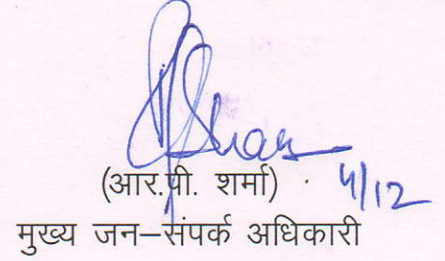 (आर.पी. शर्मा) 4/12
मुख्य जन-संपर्क अधिकारी